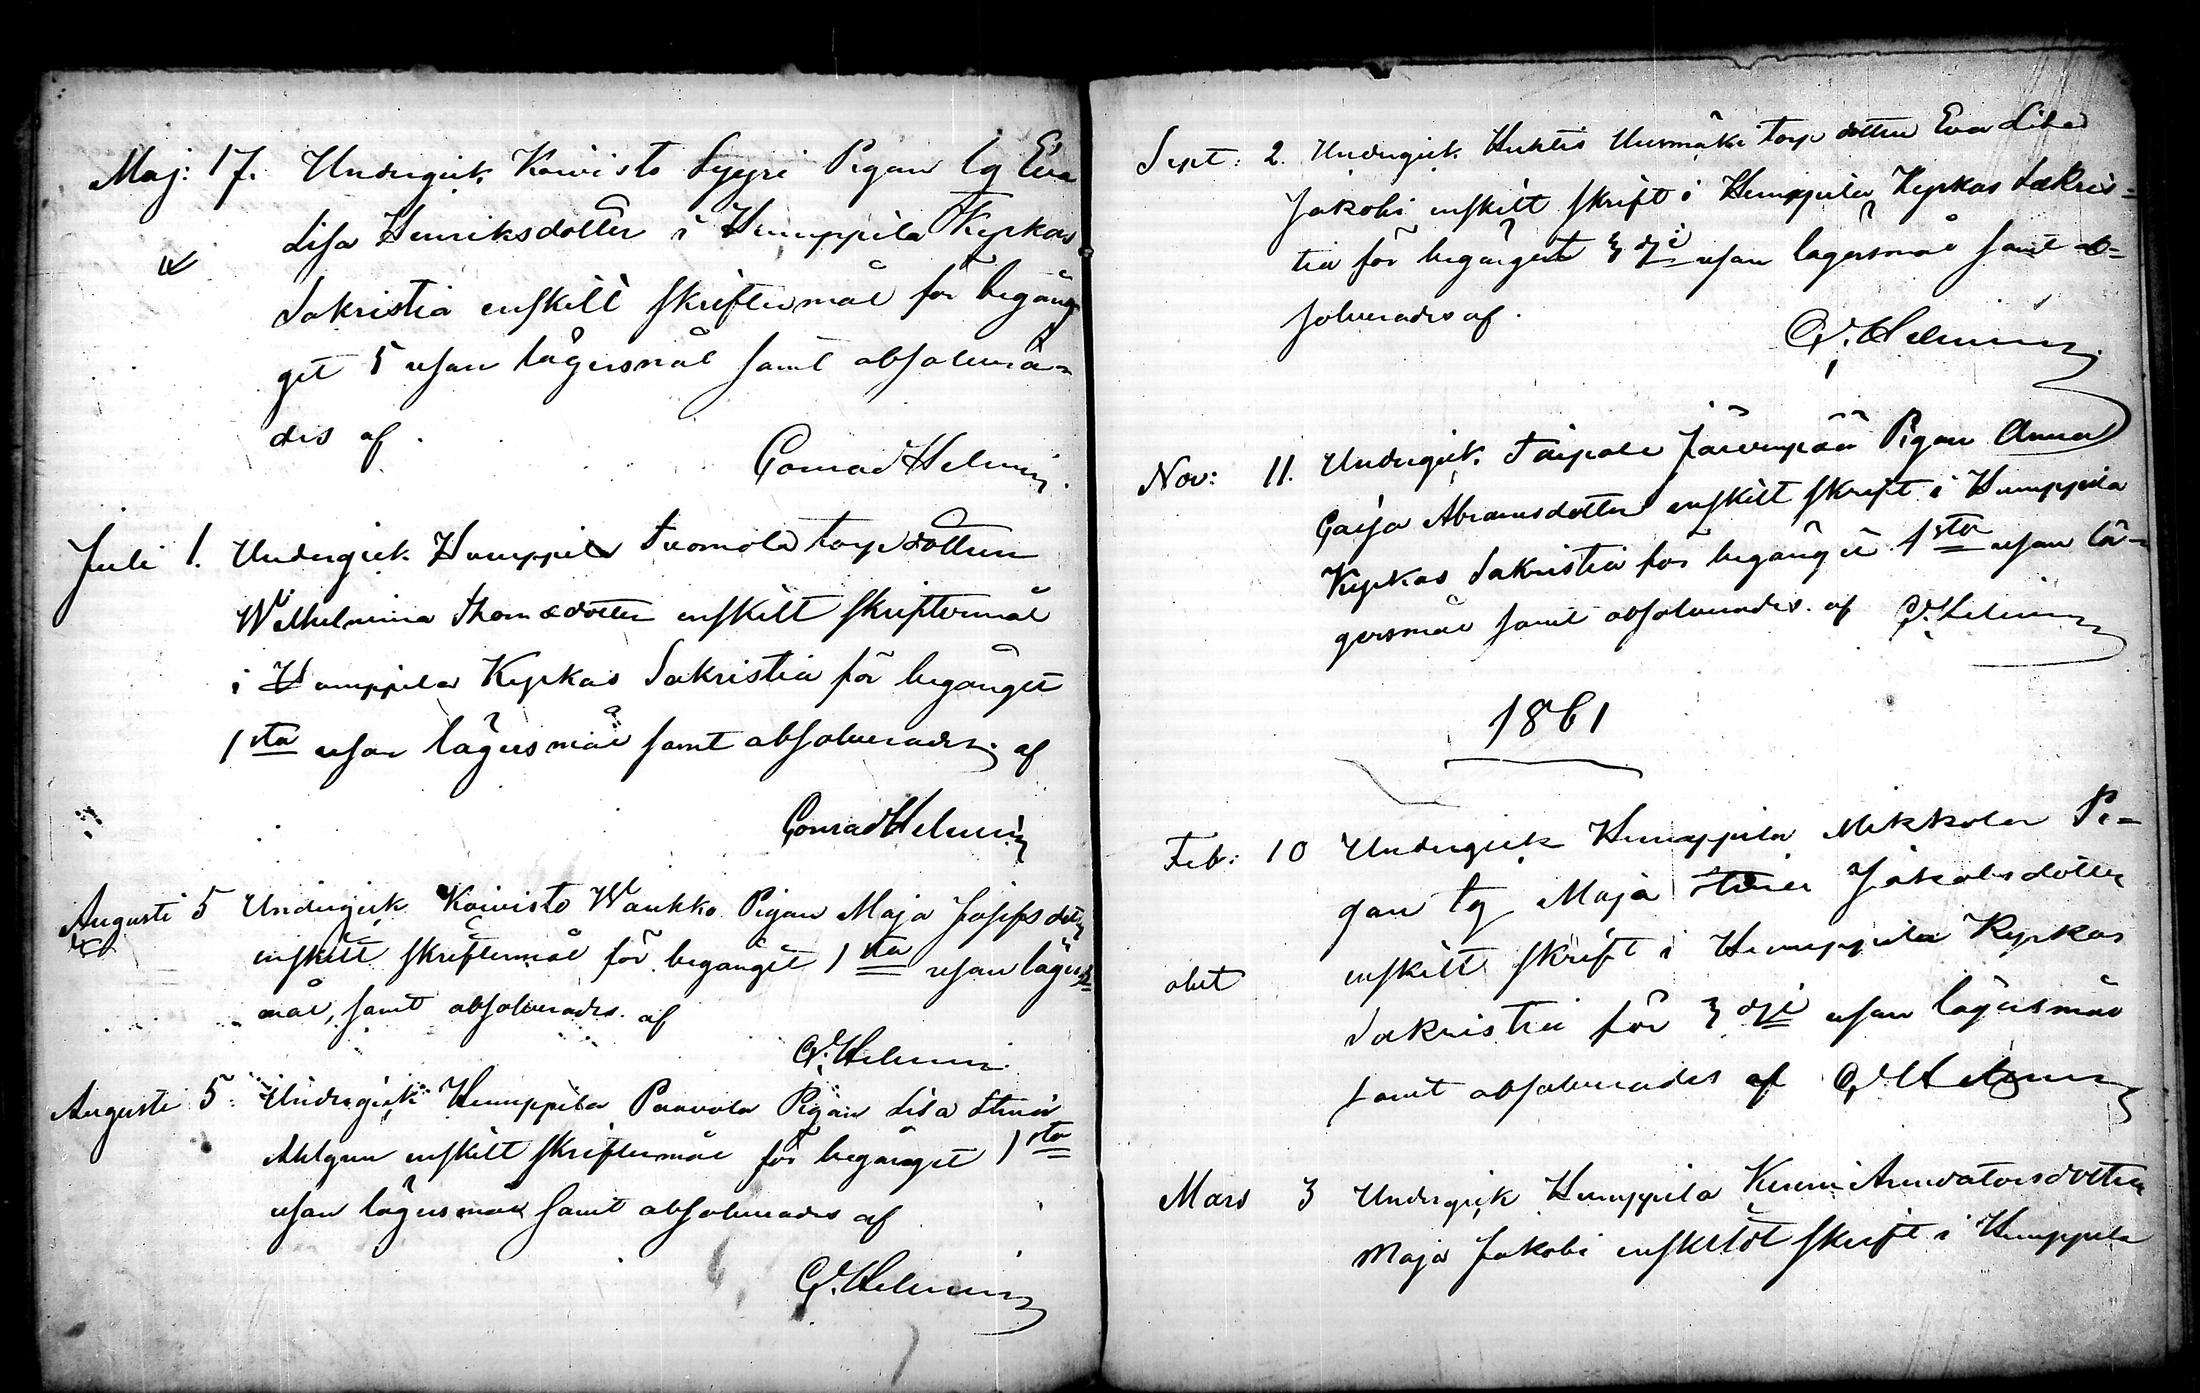 Maj: 17. Undergick Koivisto Syyri Pigan lg Eva
Lisa Henriksdotter i Humppila Kyrkas
Sakristia enskilt skriftermål för begån-
get 5 resan lägersmål samt absolvera-
des af
Conrad Helenin
Juli 1. Undergick Humppila Tuomola torp dottren
Wilhelmina Thomædotter enskilt skriftermål
i Humppila Kyrkas Sakristia för begånget
1sta resan lägersmål samt absolverades af
Conrad Helenin
Augusti 5 Undergick Koivisto Waukko Pigan Maja Josefsdotter
enskilt skriftermål för begånget 1sta resan lägers-
mål, samt absolverades af
C. Helenin
Augusti 5. Undergick Humppila Paavola Pigan Lisa Stina
Ahlgren enskilt skriftermål för begånget 1sta
resan lägersmål samt absolverades af
C. Helenin
Sept: 2. Undergick Huhtis Uusmäki torp dottren Eva Lisa
Jakobi enskilt skrift i Humppila Kyrkas Sakris-
tia för begånget 3dje resan lägersmål samt ab-
solverades af.
C. Helenin
Nov: 11. Undergick Taipale Järvenpää Pigan Anna
Caisa Abramsdotter enskilt skrift i Humppila
Kyrkas Sakristia för begånget 1sta resan lä-
gersmål samt absolverades af C. Helenin
1861
Feb: 10 Undergick Humppila Mikkola Pi-
gan lg Maja Stina Jakobsdotter
enskilt skrift i Humppila Kyrkas
Sakristia för 3dje resan lägersmål
samt absolverades af C. Helenin
Mars 3 Undergick Humppila Arendatorsdotter
Maja Jakobi enskildt skrift i Humppila